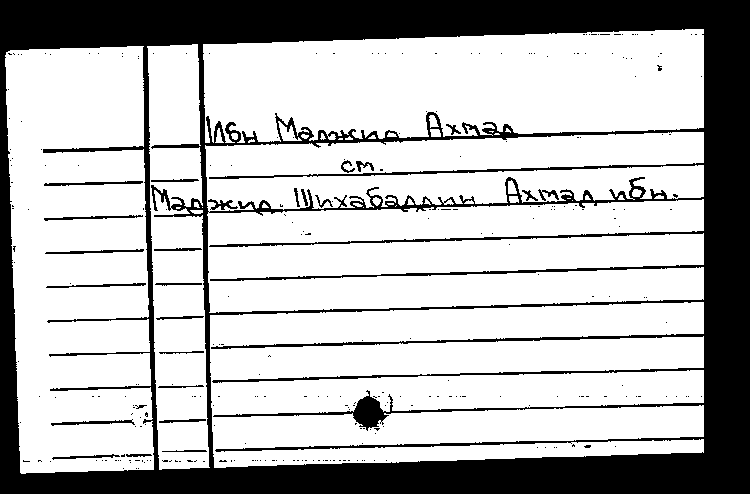 Ибн Маджид Ахмад
см.
Маджид. Шихабаддин Ахмад ибн.